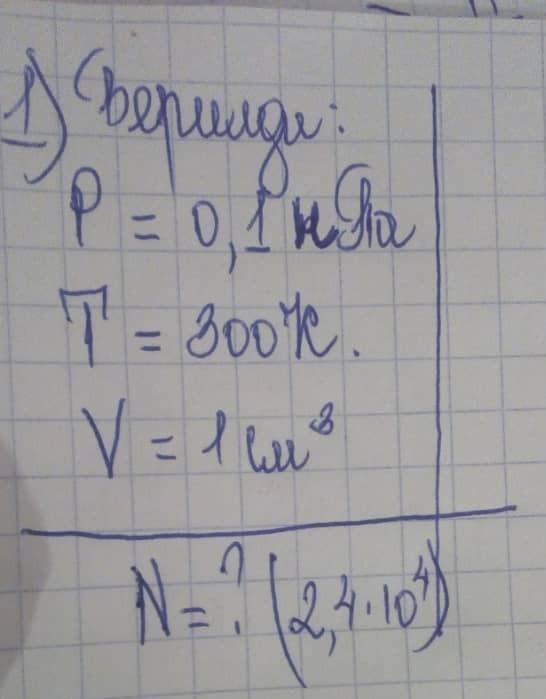 1) Берилди:
P = 0,1 нПа
T = 300K.
V = 1 см³
N = ? (2,4·10⁴)